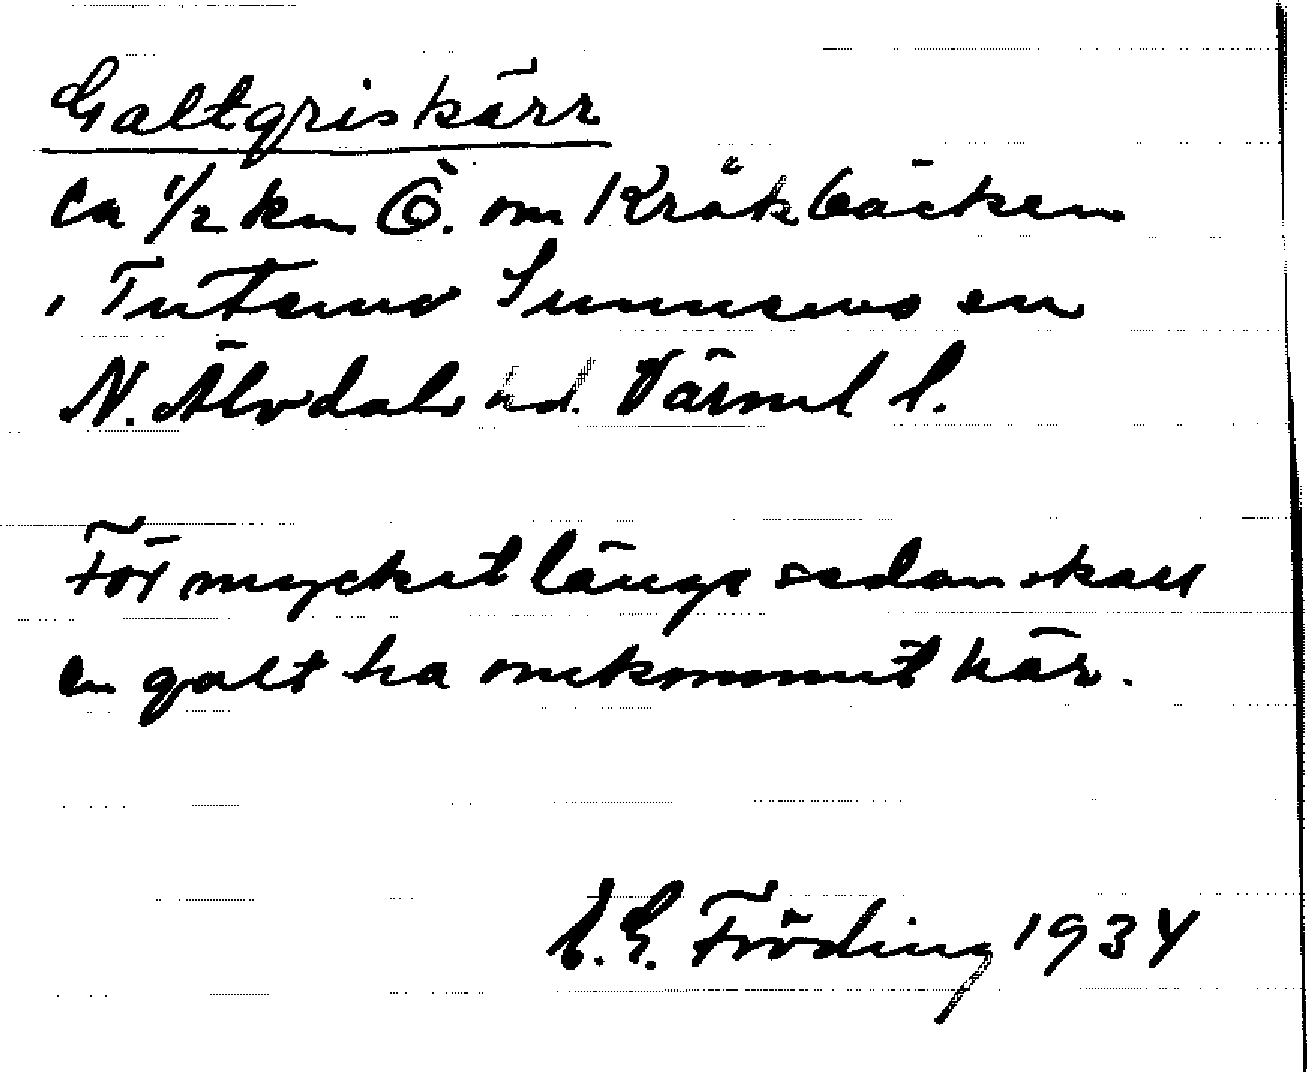 Galtgriskärr
ca 1/2 km Ö. om Kråkbäcken
i Tutemo Sunnemo sn
N. Älvdals hd. Värml l.
För mycket länge sedan skall
en galt ha omkommit här.
E.G. Fröding 1934